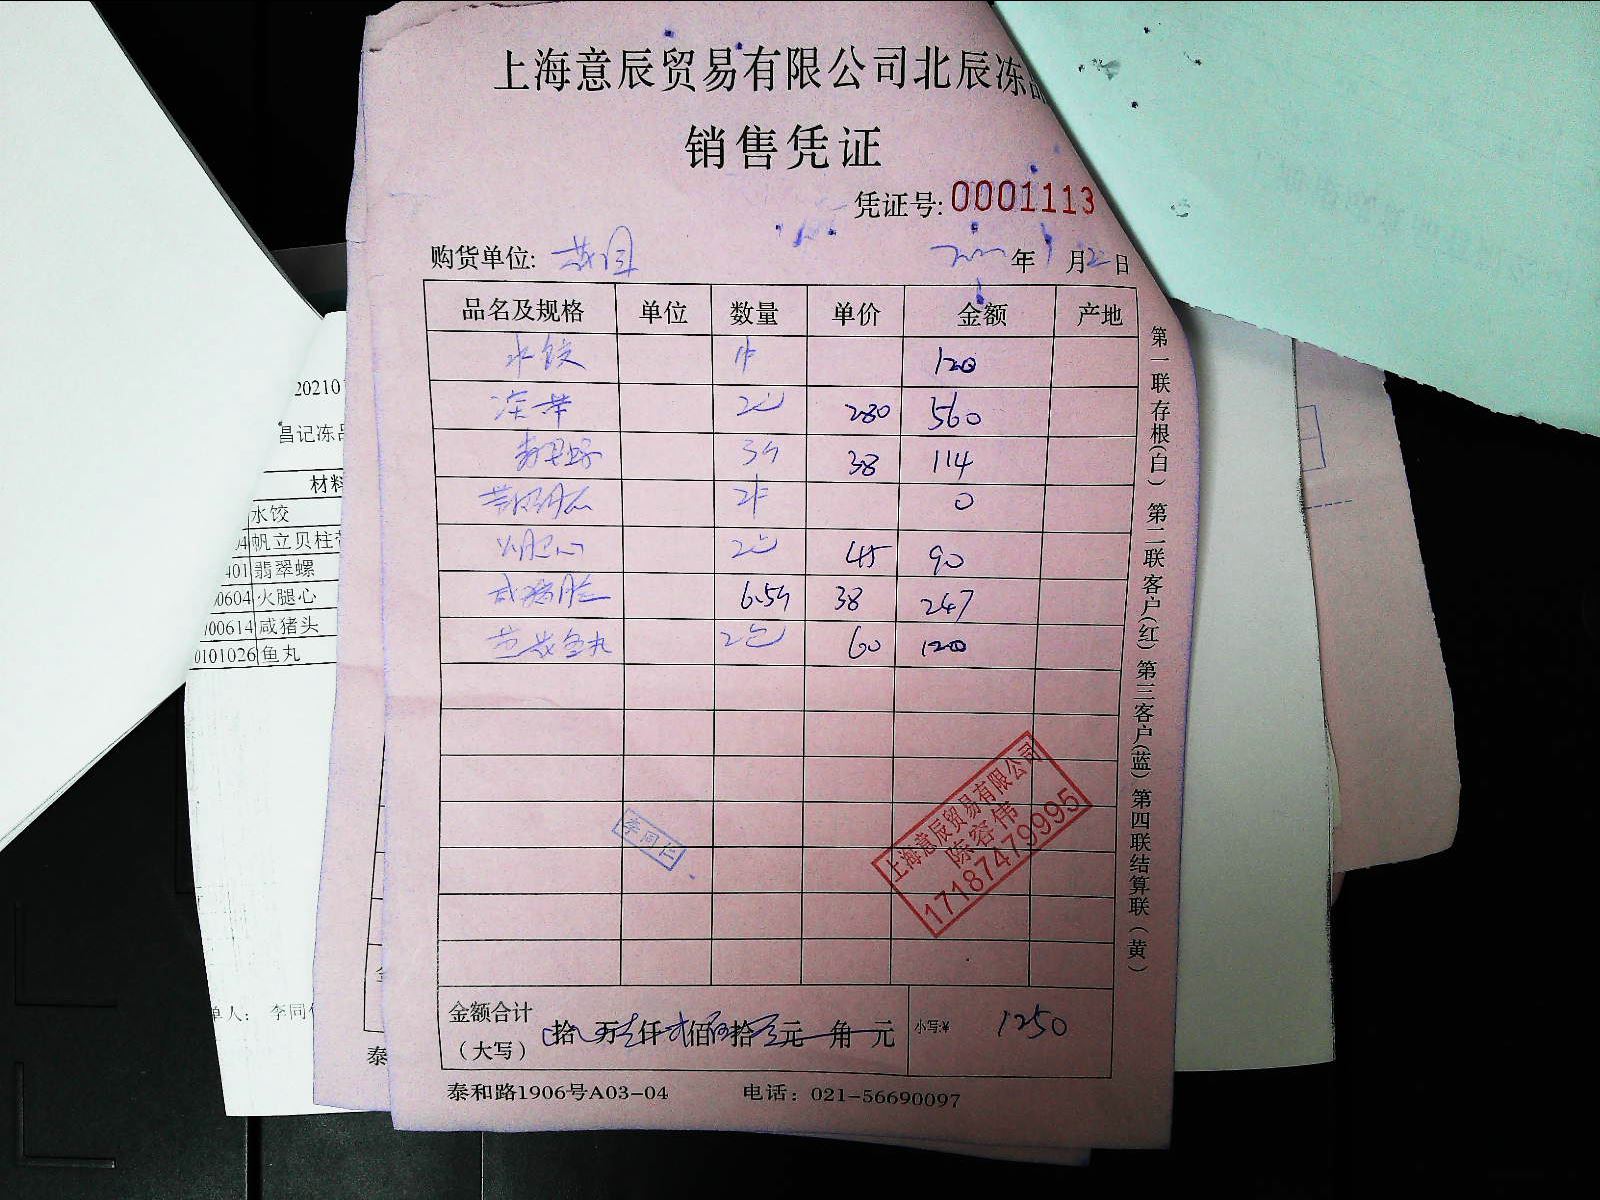 上海意辰贸易有限公司北辰冻品
销售凭证
凭证号: 0001113
购货单位:
年 月22日
品名及规格 单位 数量 单价 金额 产地
水饺 1件 120
冻带 2包 280 560
翡翠螺 3斤 38 114
2件 0
火腿心 2包 45 90
咸猪脸 6.5斤 38 247
鱼丸 2包 60 120
第一联存根(白) 第二联客户(红) 第三客户(蓝) 第四联结算联(黄)
李同仁
上海意辰贸易有限公司
陈容伟
17187479995
金额合计
(大写) 拾 万壹仟贰佰伍拾 元 角 元 小写:¥ 1250
泰和路1906号A03-04 电话: 021-56690097
20210
昌记冻品
材料
水饺
04 帆立贝柱带
401 翡翠螺
0604 火腿心
100614 咸猪头
0101026 鱼丸
单人: 李同
泰